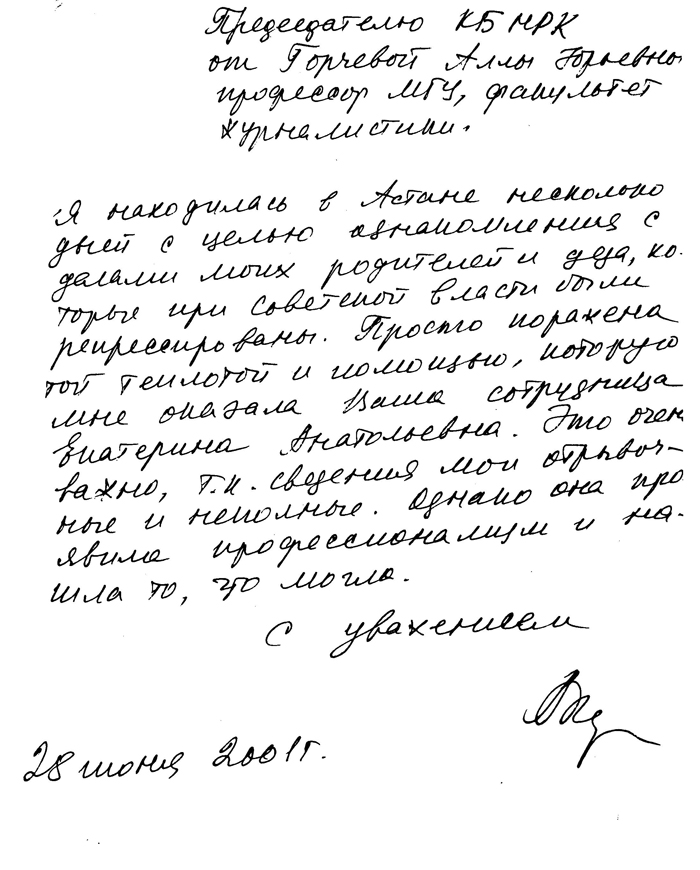 Председателю КБ МРК
от Горчевой Аллы Юрьевны
профессор МГУ, факультет
журналистики.
Я находилась в Астане несколько
дней с целью ознакомления с
делами моих родителей и деда, ко-
торые при советской власти были
репрессированы. Просто поражена
той теплотой и помощью, которую
мне оказала Ваша сотрудница
Екатерина Анатольевна. Это очен
важно, т.к. сведения мои отрывоч-
ные и неполные. Однако она про
явила профессионализм и на-
шла то, что могла.
С уважением
28 июня 2001г.